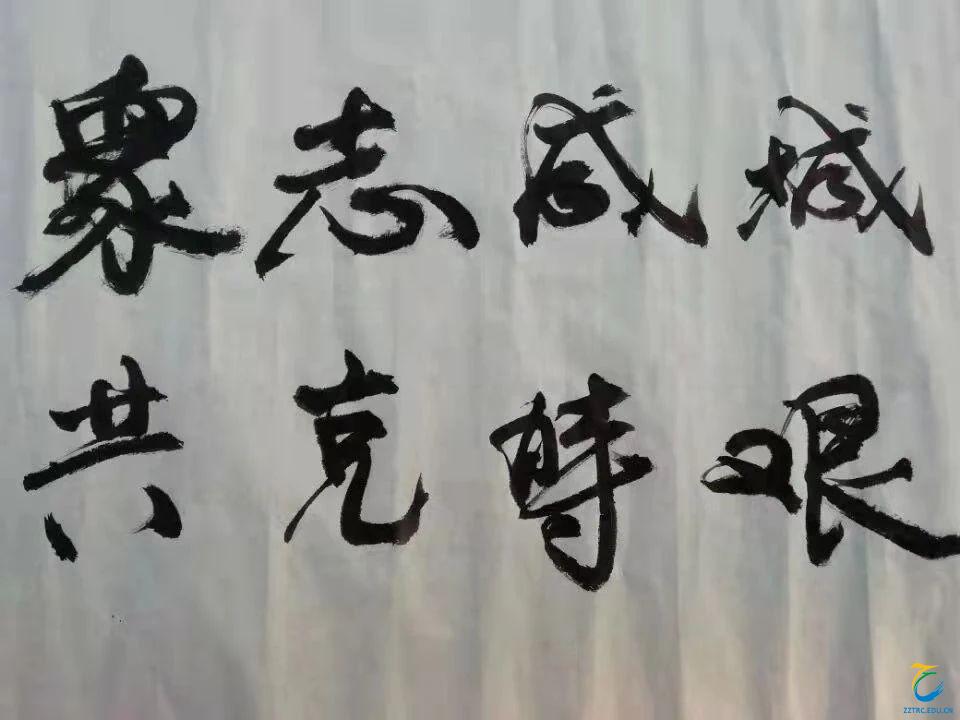 眾志成城
共克時艱
ZZTRC.EDU.CN